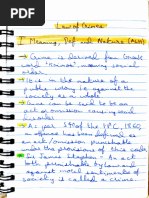 Law of Crimes
I Meaning, Def and Nature
→ Crime is derived from Greek
word "Krimos" meaning social
order.
→ It is in the nature of a
public wrong ie against the
society as a whole.
→ Crime can be said to be an
act or omission causing
→ As per S 40 of the IPC, 1860
an offence has been defined as
an act/omission punishable under
the provision of this code
→ James Stephen - An act
both punishable by law and
against moral sentiments of
society is called a crime.